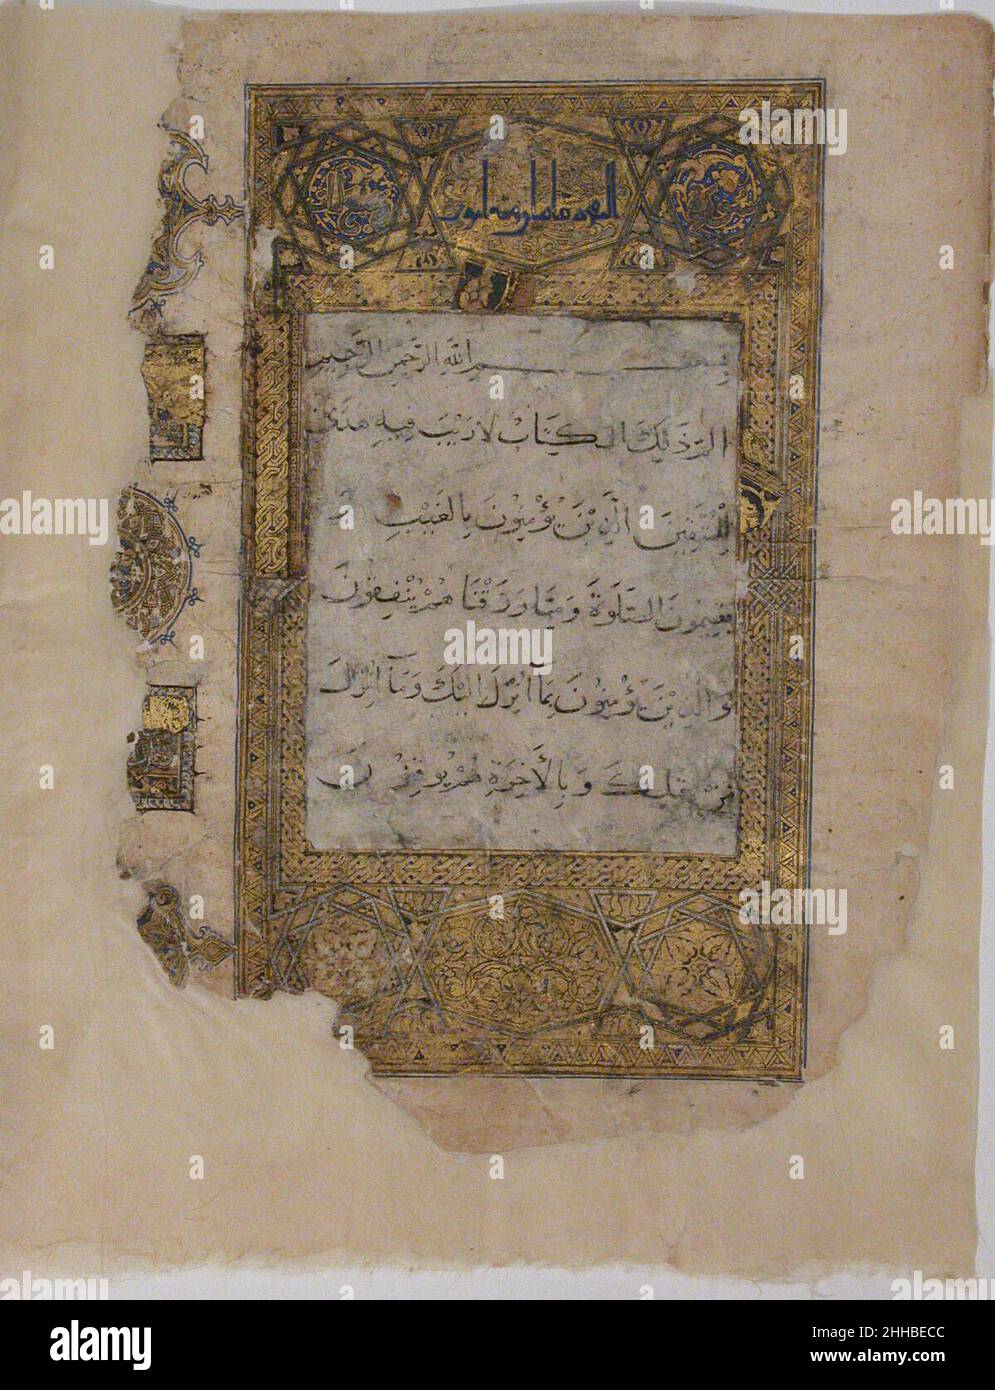 البقرة مائتان وست وثمانون
بسم الله الرحمن الرحيم
الم ذَلِكَ الْكِتَابُ لَا رَيْبَ فِيهِ هُدًى
لِلْمُتَّقِينَ الَّذِينَ يُؤْمِنُونَ بِالْغَيْبِ وَ
يُقِيمُونَ الصَّلَوةَ وَمِمَّا رَزَقْنَاهُمْ يُنْفِقُونَ
وَالَّذِينَ يُؤْمِنُونَ بِمَا أُنْزِلَ إِلَيْكَ وَمَا أُنْزِلَ
مِنْ قَبْلِكَ وَبِالْأَخِرَةِ هُمْ يُوقِنُونَ
alamy
alamy
alamy
alamy
alamy
alamy
Image ID: 2HHBECC
www.alamy.com